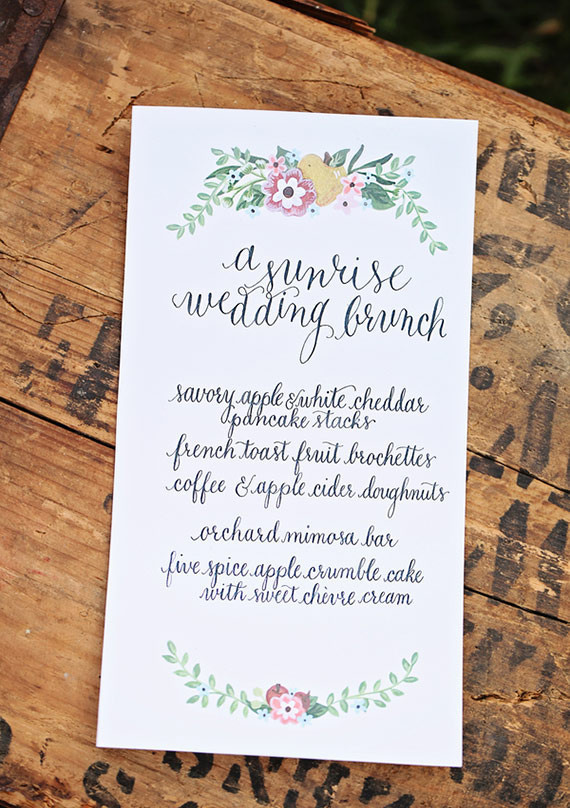 a sunrise
wedding brunch
savory apple & white cheddar
pancake stacks
french toast fruit brochettes
coffee & apple cider doughnuts
orchard mimosa bar
five spice apple crumble cake
with sweet chèvre cream